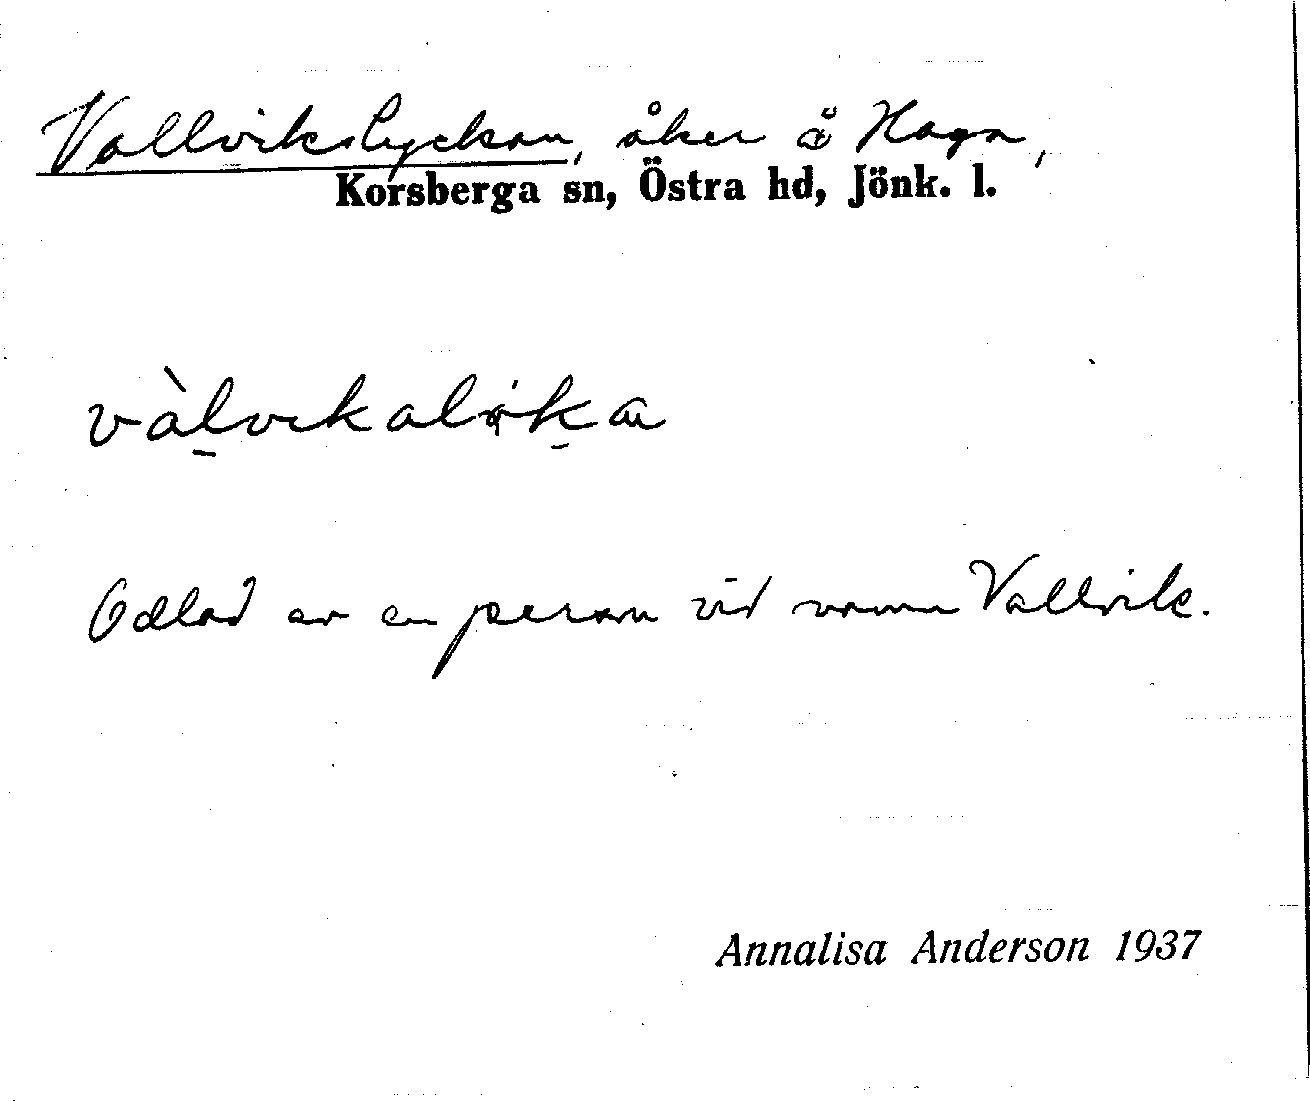 Vallvikslyckan, åker å Haga,
Korsberga sn, Östra hd, Jönk. l.
vàlvikalöka
Odlad av en person vid namn Vallvik.
Annalisa Anderson 1937